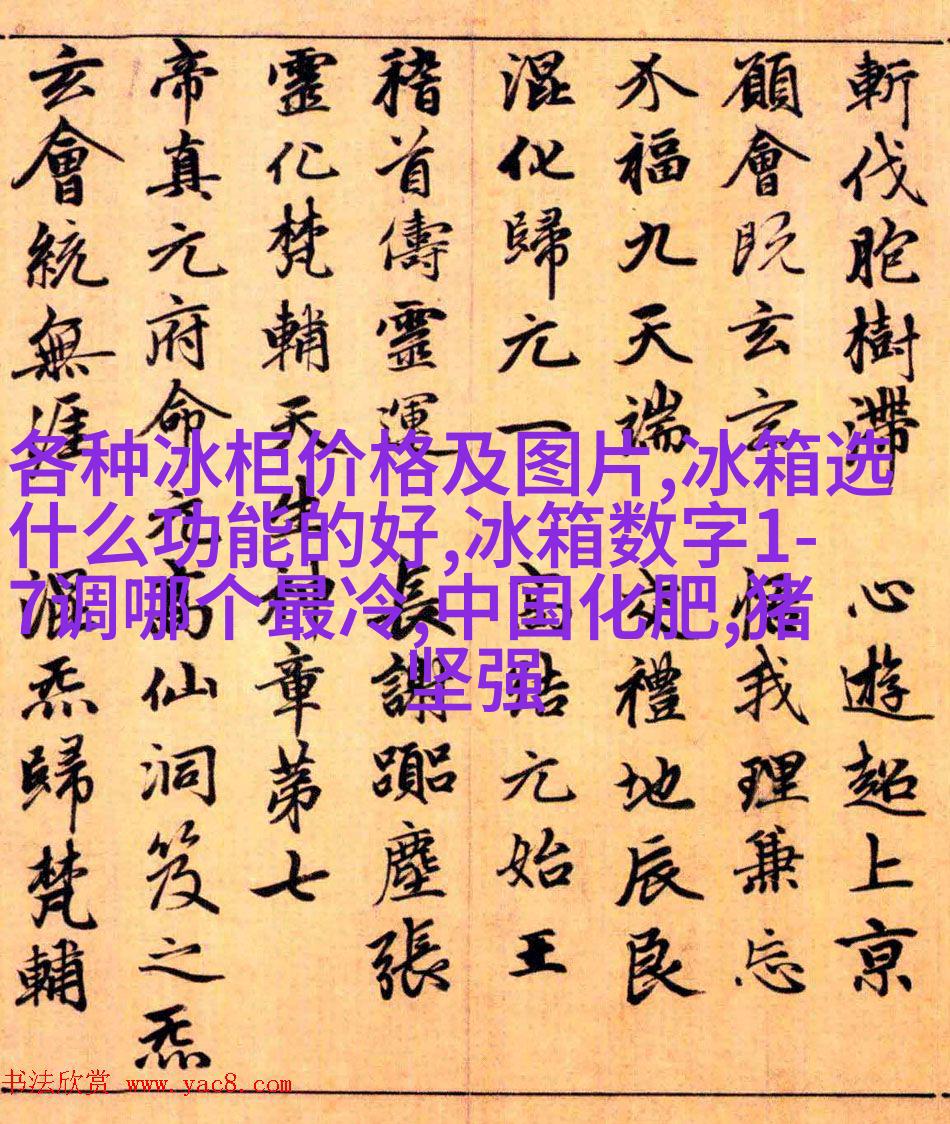 斬伐胞樹滯 心遊超上京
願會既玄玄 悟我理兼忘
介福九天端 交禮地辰良
混化歸元一 高結元始王
稽首儔靈運 長謝塵張
靈化梵輔天生神章第七
帝真元府命元高仙洞笈之炁
玄會統無涯 混炁歸梵輔
各种冰柜价格及图片,冰箱选
什么功能的好,冰箱数字1-
7调哪个最冷,中国化肥,猪
坚强
书法欣赏 www.yac8.com